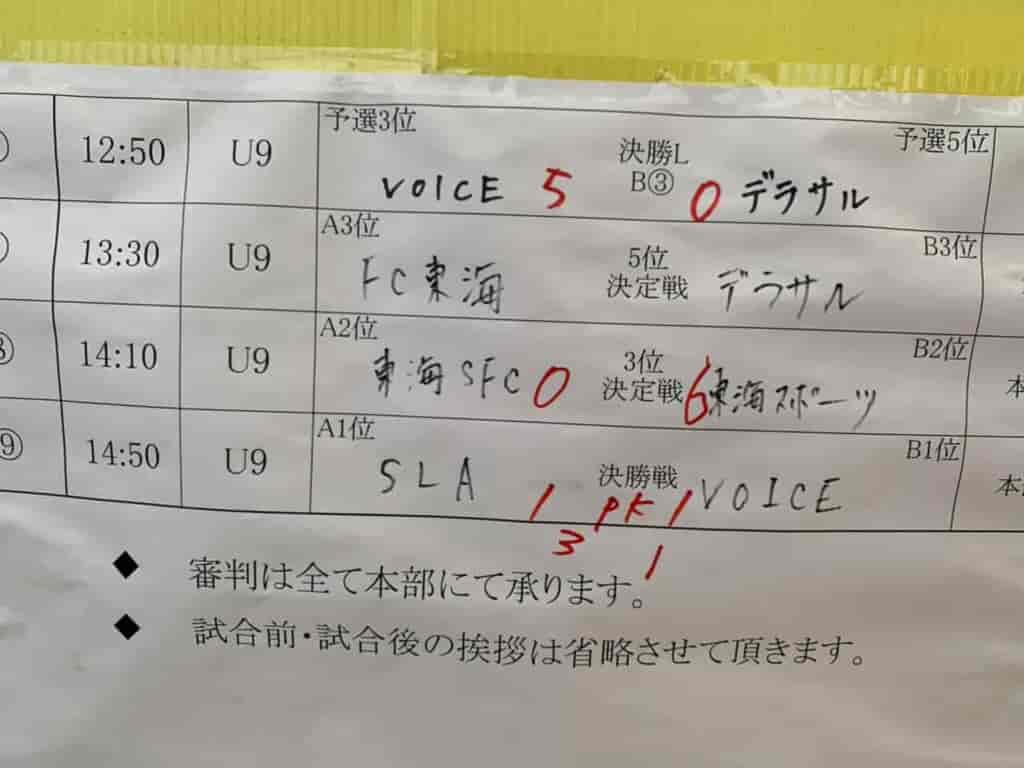 12:50 U9 予選3位 決勝L 予選5位
VOICE 5 B③ 0 デラサル
13:30 U9 A3位 5位 B3位
FC東海 決定戦 デラサル
14:10 U9 A2位 3位 B2位
東海SFC 0 決定戦 6 東海スポーツ 本
⑨ 14:50 U9 A1位 決勝戦 B1位
SLA 1 PK 1 VOICE 本
3 1
◆ 審判は全て本部にて承ります。
◆ 試合前・試合後の挨拶は省略させて頂きます。